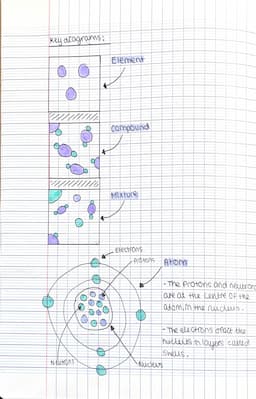 Key diagrams:
Element
Compound
Mixture
electrons
Protons
Atom
- The Protons and neutrons
are at the centre of the
atom, in the nucleus.
- The electrons orbit the
nucleus in layers called
shells.
Neutrons
Nucleus